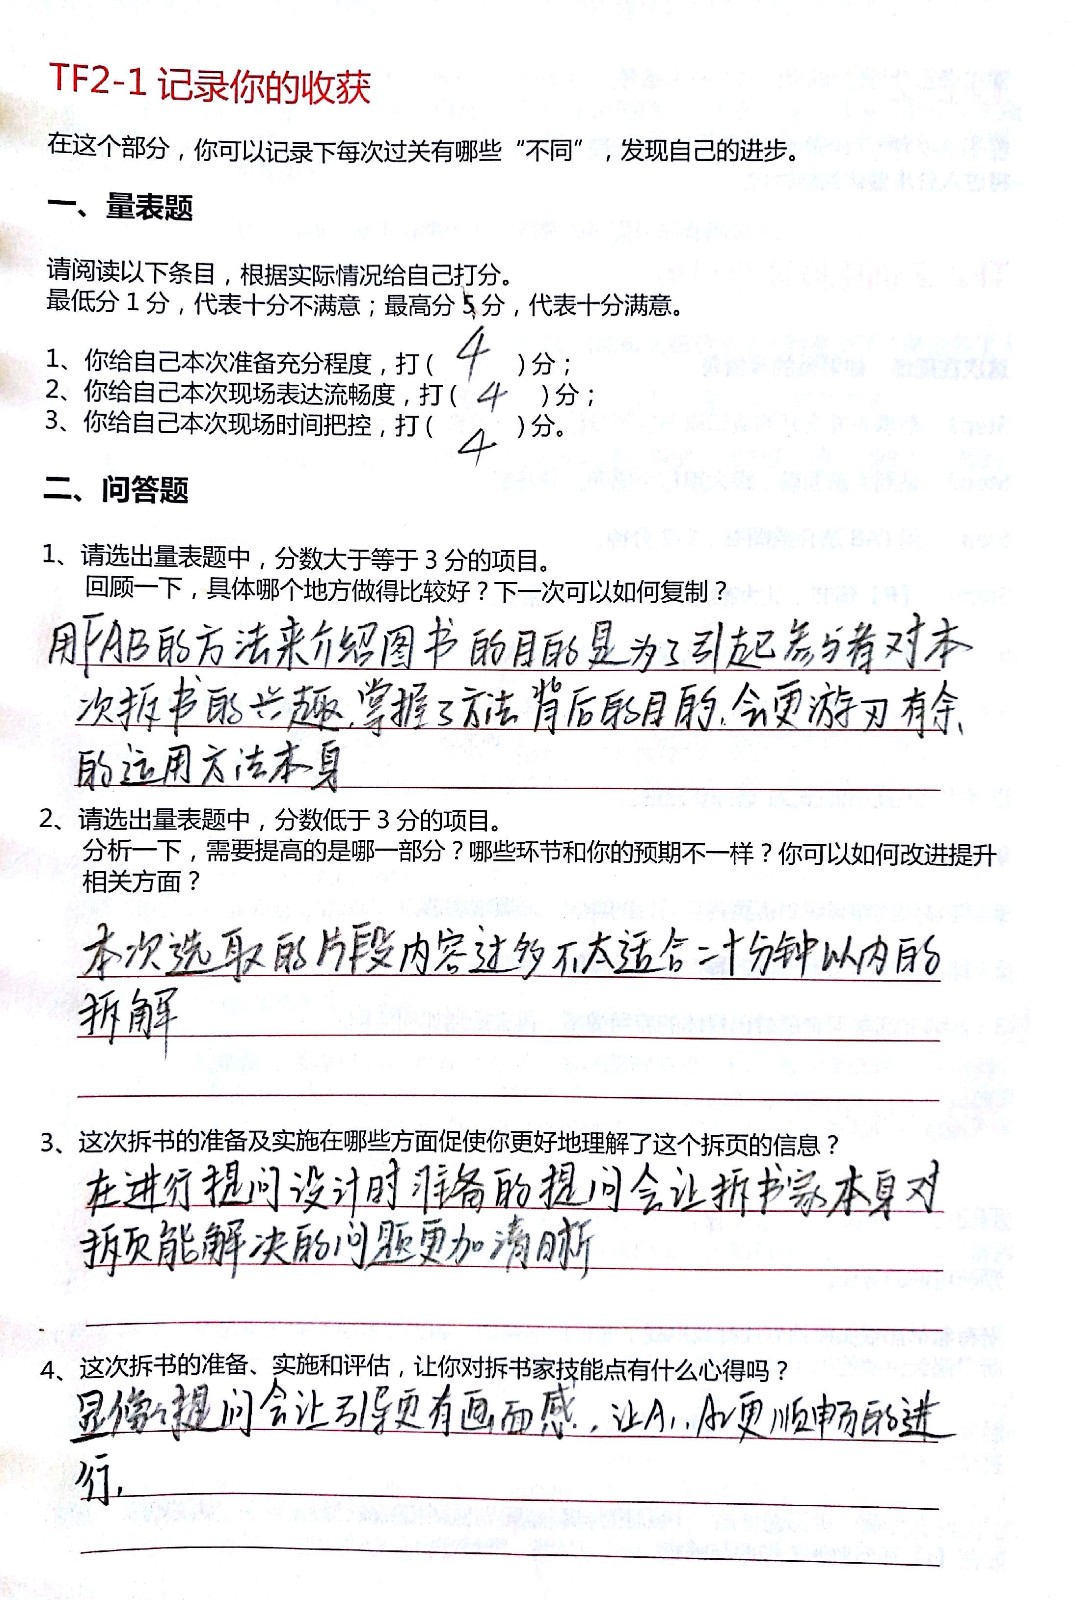 TF2-1 记录你的收获
在这个部分，你可以记录下每次过关有哪些“不同”，发现自己的进步。
一、量表题
请阅读以下条目，根据实际情况给自己打分。
最低分 1 分，代表十分不满意；最高分 5 分，代表十分满意。
1、你给自己本次准备充分程度，打( 4 )分；
2、你给自己本次现场表达流畅度，打( 4 )分；
3、你给自己本次现场时间把控，打( 4 )分。
二、问答题
1、请选出量表题中，分数大于等于 3 分的项目。
回顾一下，具体哪个地方做得比较好？下一次可以如何复制？
用FAB的方法来介绍图书的目的是为了引起参与者对本
次拆书的兴趣，掌握了方法背后的目的，会更游刃有余
的运用方法本身
2、请选出量表题中，分数低于 3 分的项目。
分析一下，需要提高的是哪一部分？哪些环节和你的预期不一样？你可以如何改进提升
相关方面？
本次选取的片段内容过多不太适合二十分钟以内的
拆解
3、这次拆书的准备及实施在哪些方面促使你更好地理解了这个拆页的信息？
在进行提问设计时准备的提问会让拆书家本身对
拆页能解决的问题更加清晰
4、这次拆书的准备、实施和评估，让你对拆书家技能点有什么心得吗？
显像个提问会让引导更有画面感，让A1、A2更顺畅的进
行.